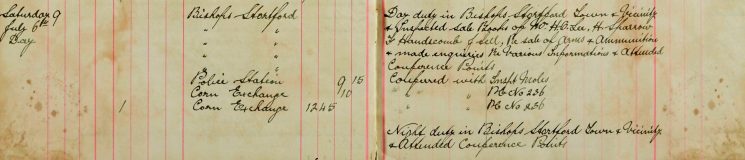 Saturday 9 Bishops Stortford Day duty in Bishops Stortford Town & Vicinity
July 6th " " & Inspected Sale Books of H. Sharrow
Day " " F Handscomb Sell, Re sale of Arms & Ammunition
" " & made inquiries Re Various Informations & Attended
B " Conference Points
Police Station 9 15 Confered with Insht Moles
Corn Exchange 9 10 " " PC No 236
1 Corn Exchange 12 45 " " PC No 236
Night duty in Bishops Stortford Town & Vicinity
& Attended Conference Points